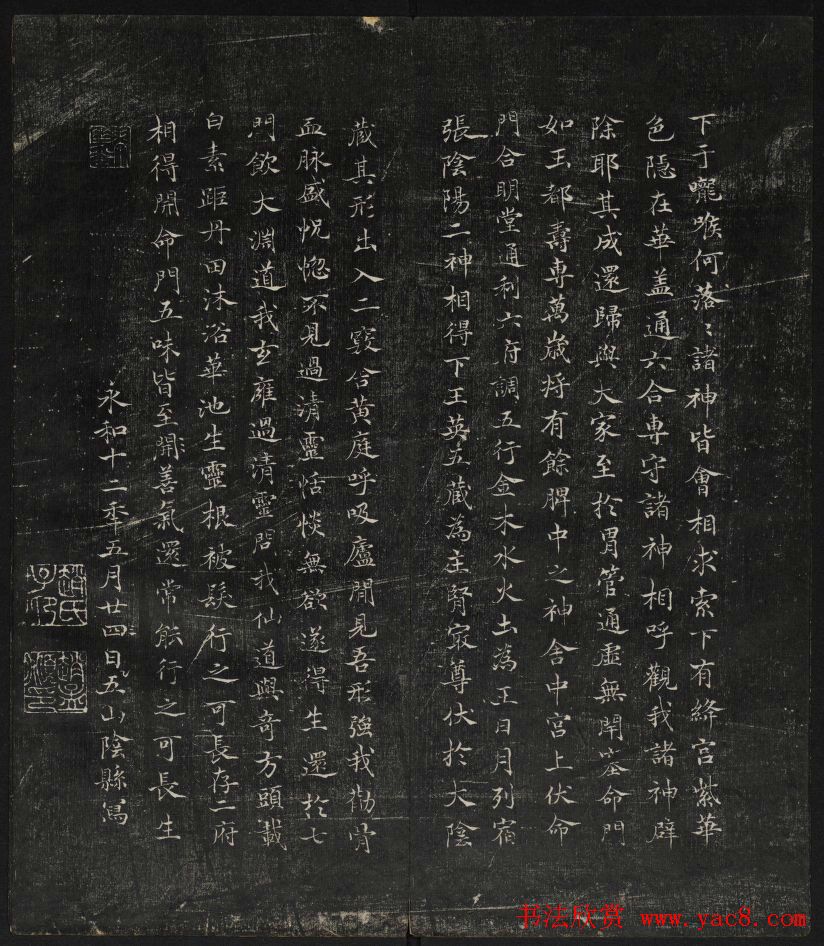 下于嚨喉何落〻諸神皆會相求索下有絳宮紫華
色隱在華蓋通六合専守諸神相呼觀我諸神辟
除耶其成還歸與大家至於胃管通虛無閉塞命門
如玉都壽専萬歲将有餘脾中之神舍中宮上伏命
門合明堂通利六府調五行金木水火土為王日月列宿
張陰陽二神相得下玉英五藏為主腎㝡尊伏於大陰
藏其形出入二竅合黄庭呼吸廬間見吾形強我筋骨
血脉盛怳惚不見過清靈恬惔無欲遂得生還於七
門飲大淵道我玄雍過清靈問我仙道與奇方頭載
白素距丹田沐浴華池生靈根被髮行之可長存二府
相得開命門五味皆至開善氣還常能行之可長生
永和十二年五月廿四日五山陰縣寫
趙氏子昂
趙孟頫印
书法欣赏 www.yac8.com